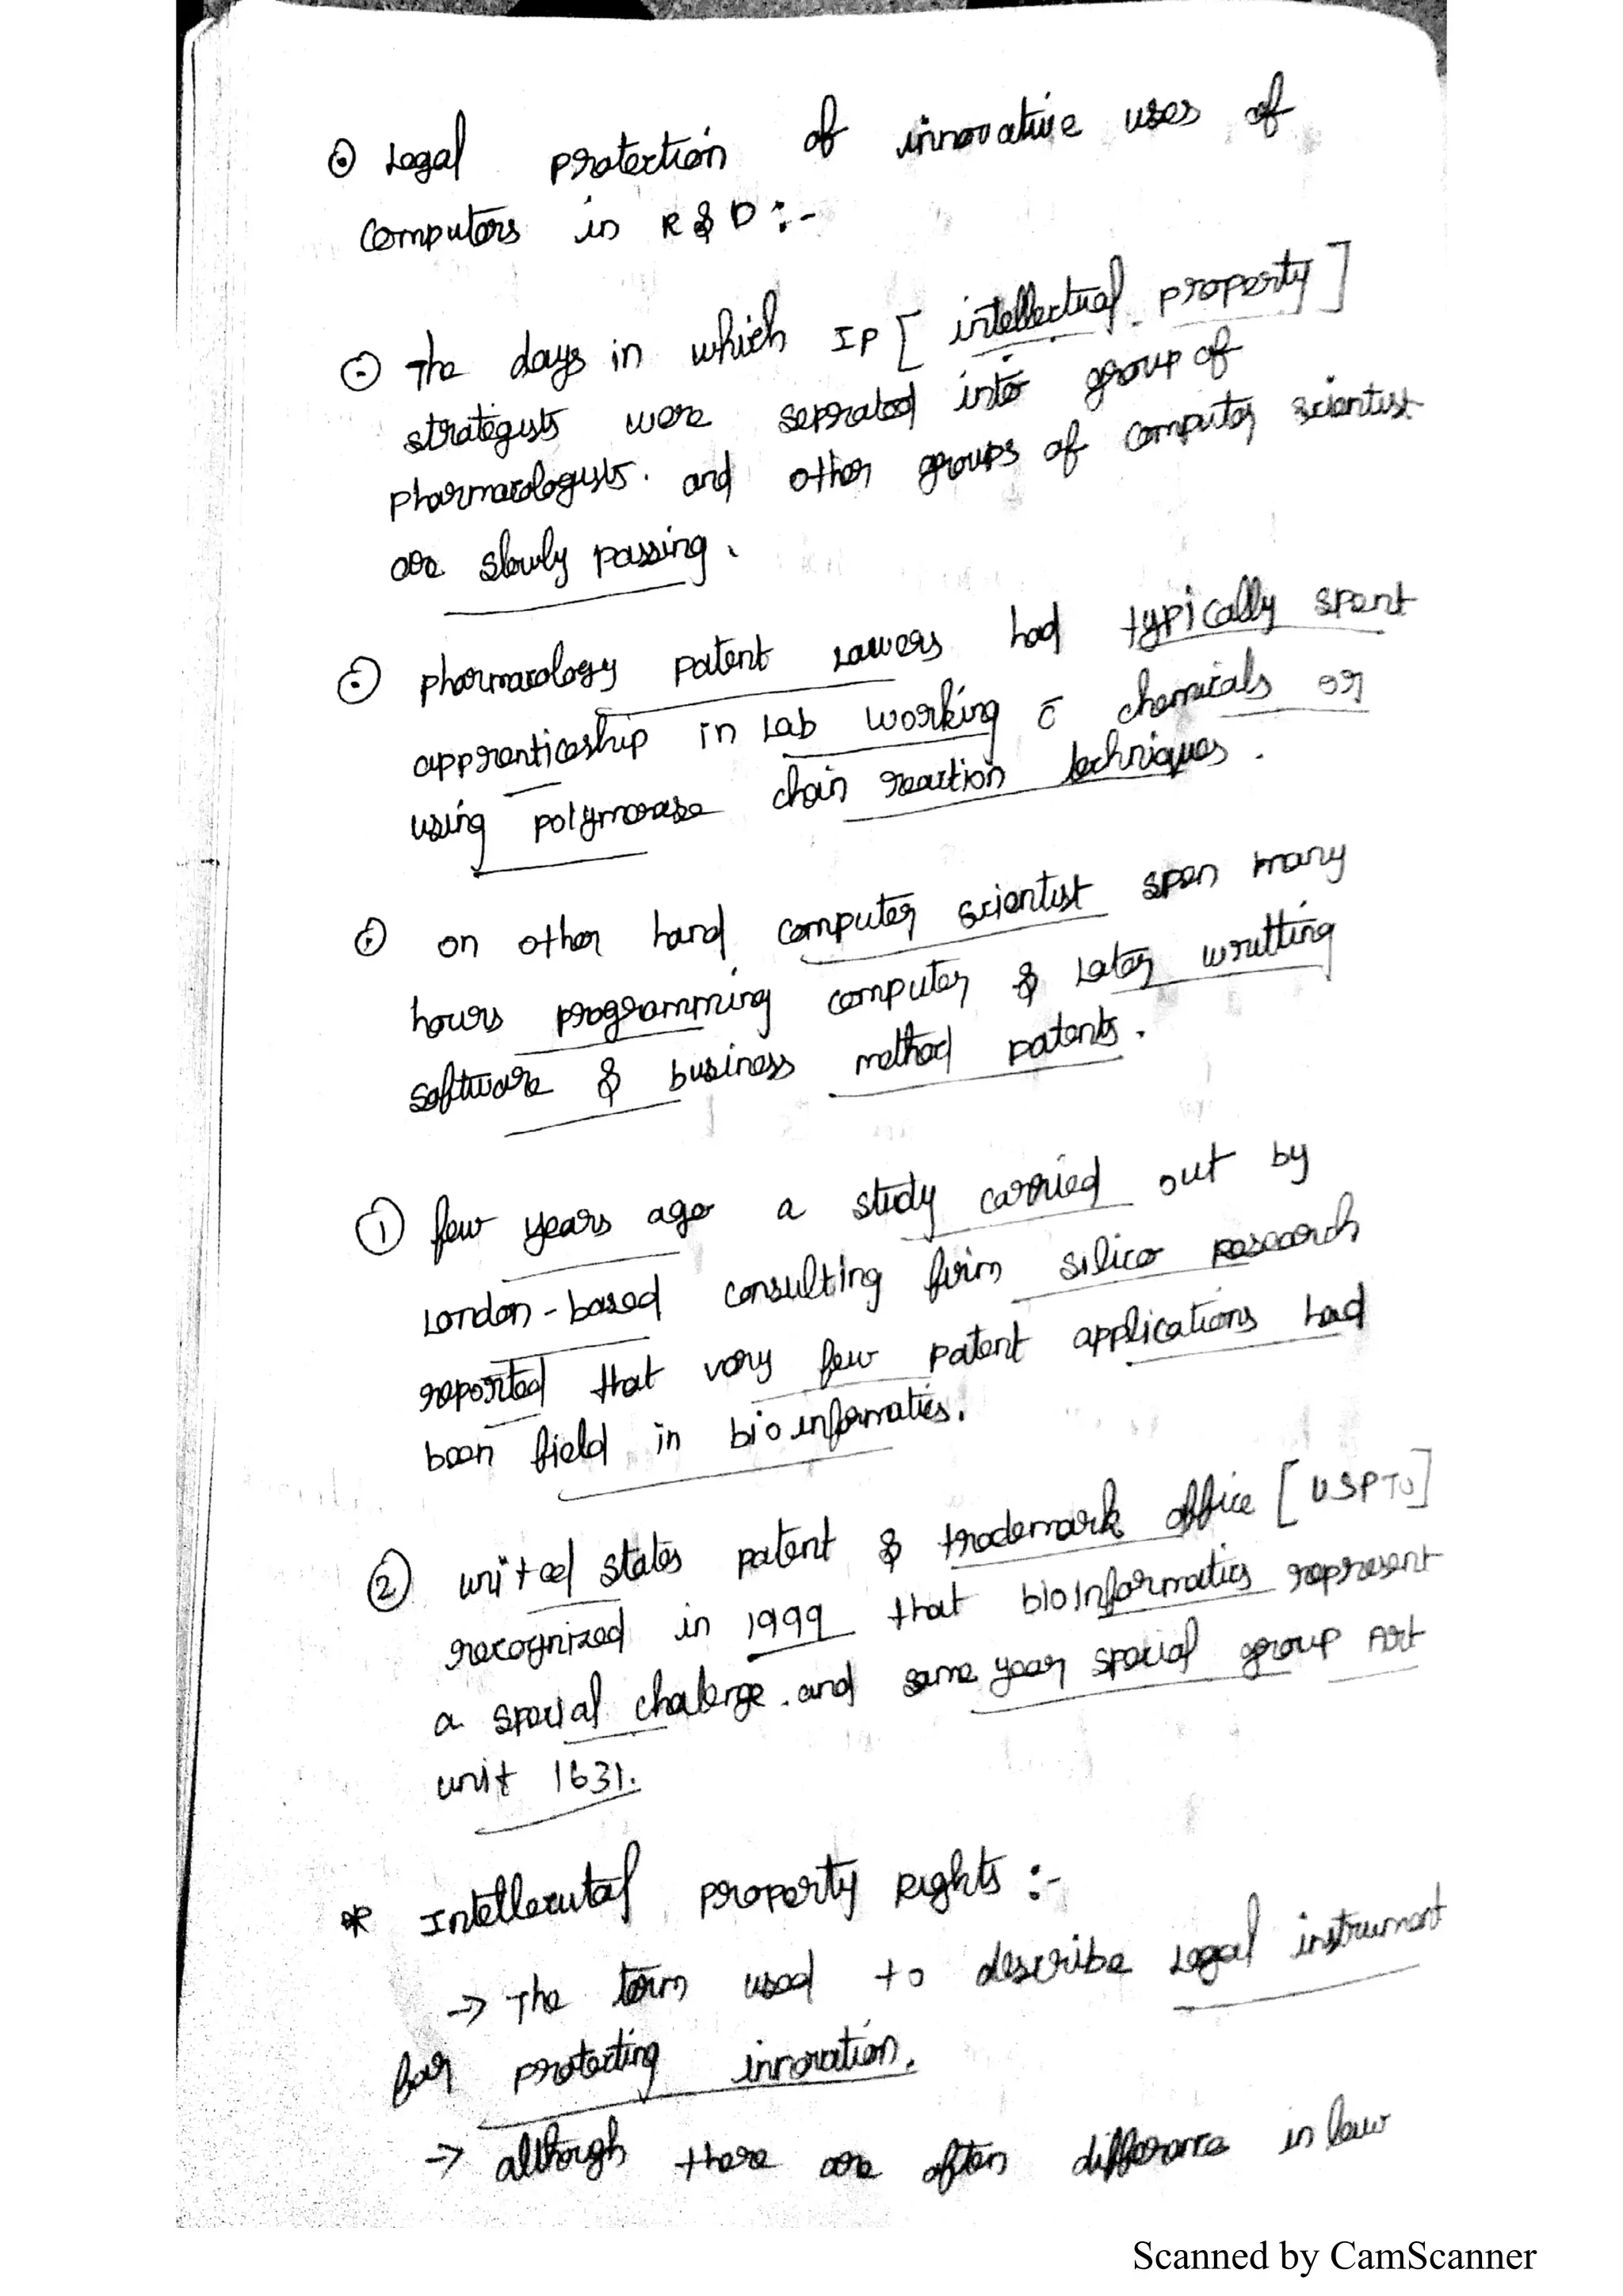 ⊙ Legal protection of innovative uses of
Computers in R & D :-
⊙ The days in which IP [ intellectual property ]
strategists were seprated into group of
pharmacologists. and other groups of computer scientist
are slowly passing.
⊙ pharmacology patent Lawers had typically spent
apprenticeship in Lab working c̄ chemicals or
using polymerase chain reaction techniques.
⊙ on other hand computer scientist spen many
hours programming computer & Later writting
software & business method patents.
① few years ago a study carried out by
London-based consulting firm silico research
reported that very few patent applications had
been field in bioinformatics.
② united states patent & trademark office [USPTO]
recognized in 1999 that bioinformatics represent
a special challenge. and same year special group Art
unit 1631.
* Intellecutal property Rights :-
→ The term used to describe Legal instrument
for protecting innovation.
→ although there are often difference in law
Scanned by CamScanner